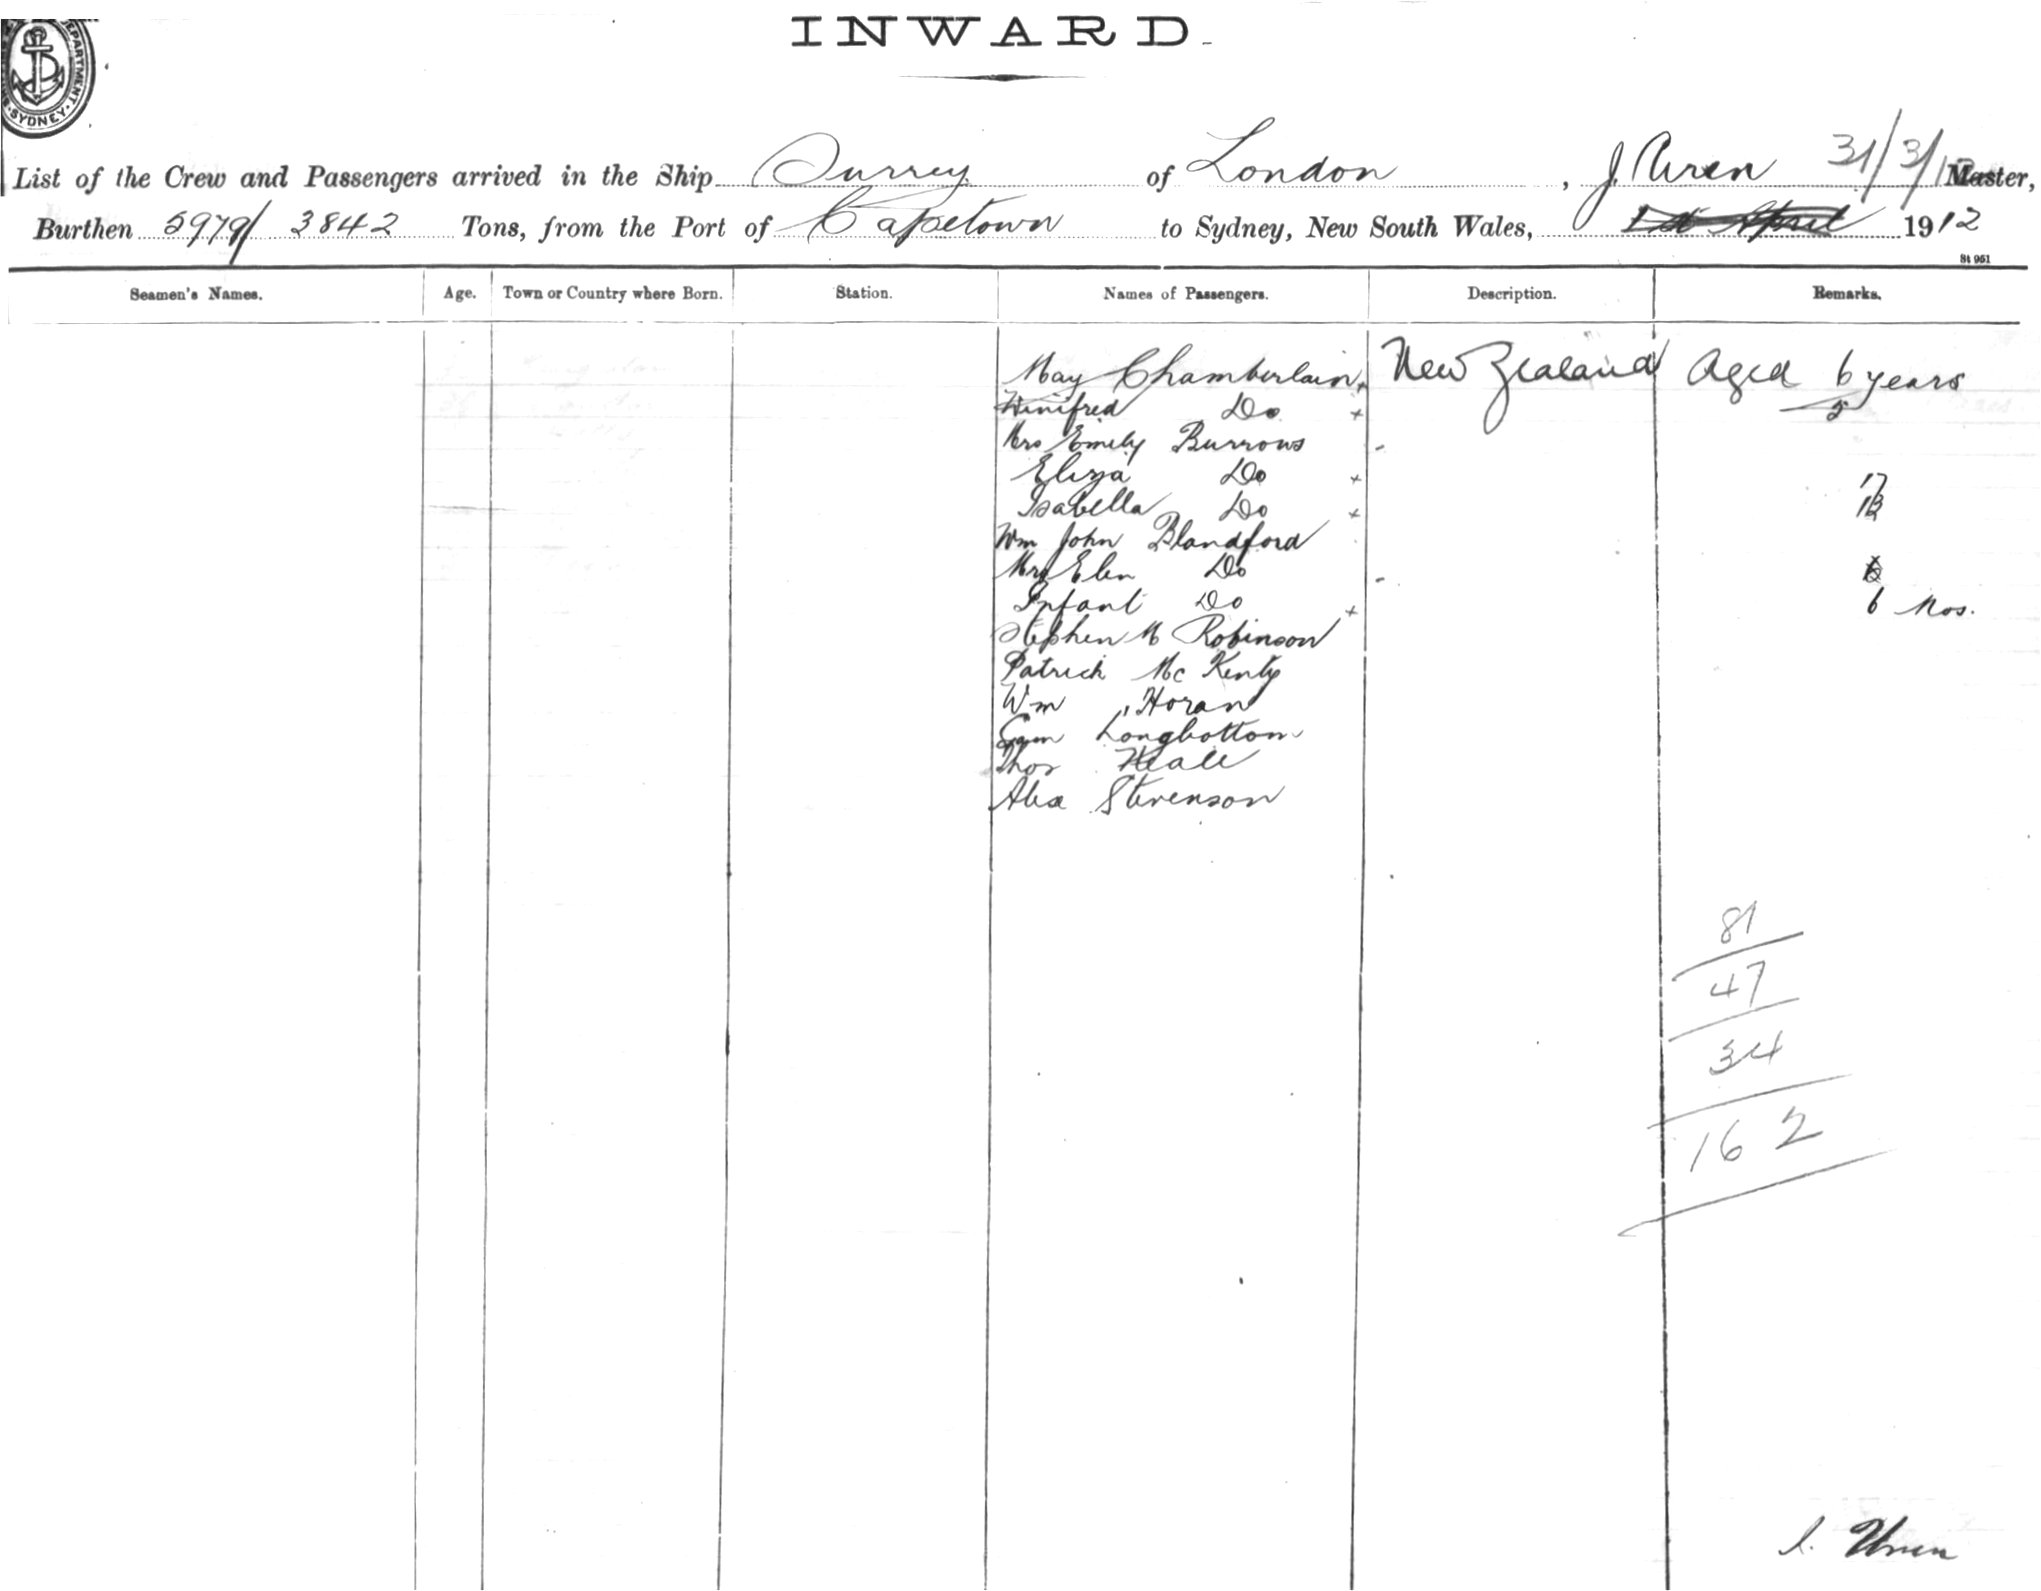 INWARD.
DEPARTMENT. SYDNEY.
List of the Crew and Passengers arrived in the Ship Surrey of London, J. Uren 31/3/12 Master,
Burthen 5979/ 3842 Tons, from the Port of Capetown to Sydney, New South Wales, 1st April 1912
St 961
Seamen's Names. Age. Town or Country where Born. Station. Names of Passengers. Description. Remarks.
May Chamberlain + New Zealand Aged 6 years
Winifred Do + 2
Mrs Emily Burrows -
Eliza Do + 17
Isabella Do + 13
Wm John Blandford
Mrs Elen Do -
Infant Do + 6 Mos.
Stephen M Robinson
Patrick McKenty
Wm Horan
Sam Longbottom
Thos Heale
Alex Stevenson
81
47
34
162
J. Uren